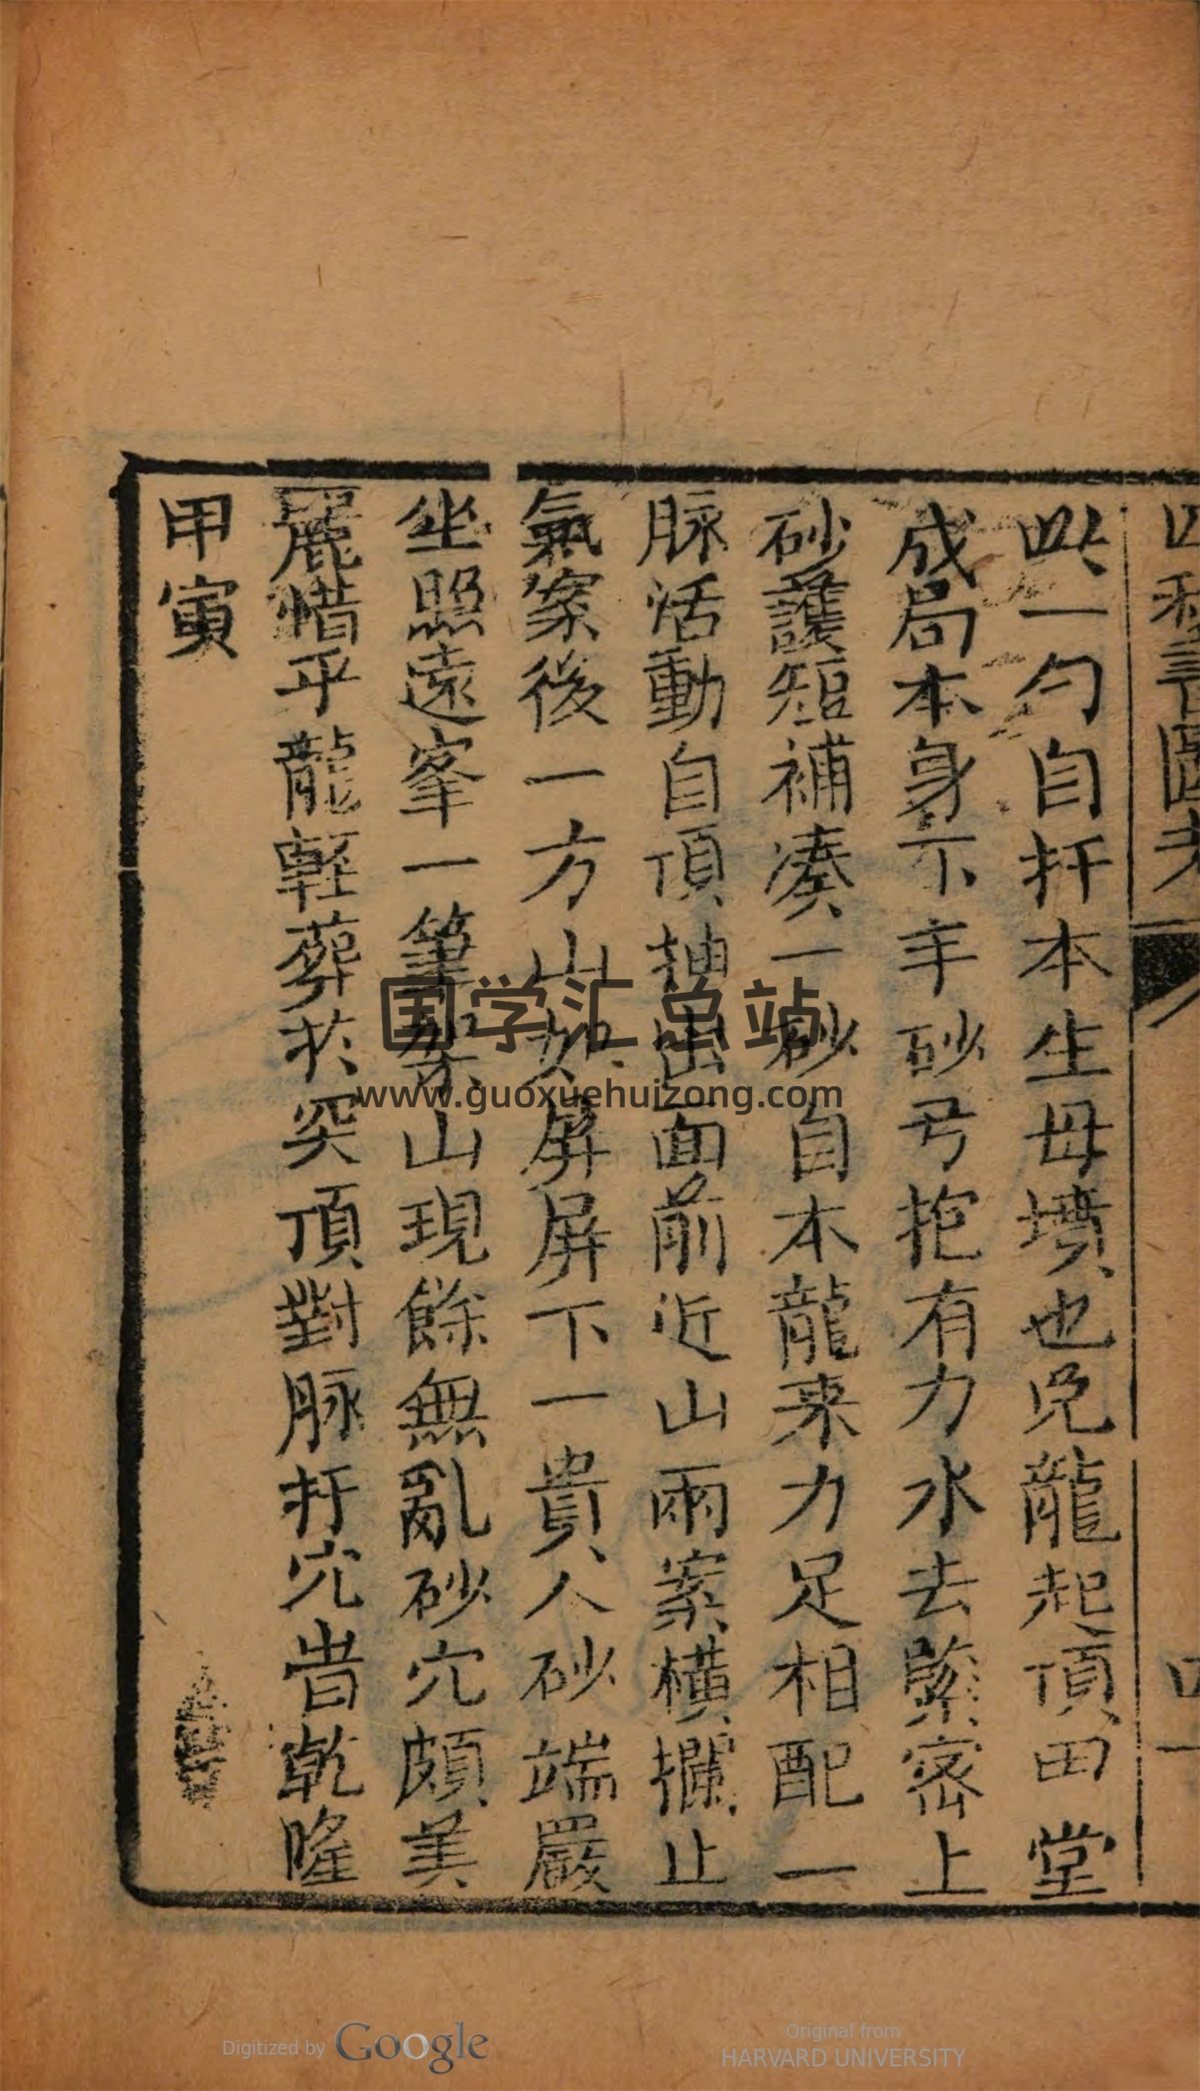 此一勻自扦本生母墳也兌龍起頂田堂
成局本身下手砂弓抱有力水去緊密上
砂護短補湊一砂自本龍来力足相配一
脉活動自頂抽出面前近山兩案橫攔止
氣案後一方山如屏屏下一貴人砂端嚴
坐照遠峯一筆架山現餘無亂砂穴頗美
麗惜乎龍輕葬扵突頂對脉扦穴旹乾隆
甲寅
国学汇总站
www.guoxuehuizong.com
Digitized by Google
Original from
HARVARD UNIVERSITY